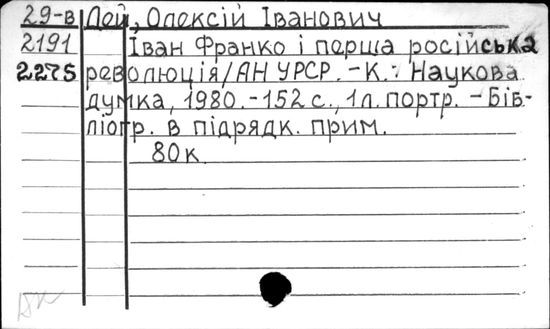 29-в Дей, Олексій Іванович
2191 Іван Франко і перша російська
2275 революція/АН УРСР. -К.: Наукова
думка, 1980.-152 с., 1л. портр. - Біб-
ліогр. в підрядк. прим.
80к